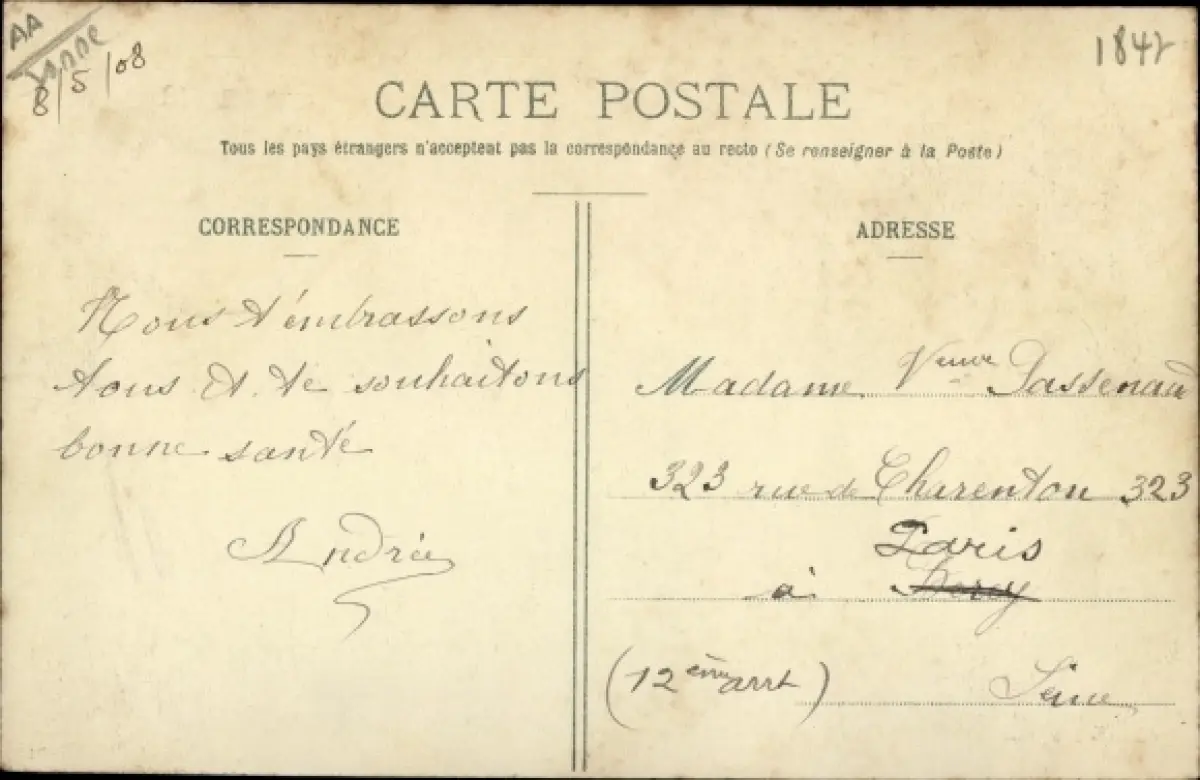 AA
Yonne
8/5/08
1842
CARTE POSTALE
Tous les pays étrangers n'acceptent pas la correspondance au recto (Se renseigner à la Poste)
CORRESPONDANCE
Nous t'embrassons
tous et te souhaitons
bonne santé
Andrée
ADRESSE
Madame Veuve Passenaud
323 rue de Charenton 323
Paris
à Bercy
(12ème arrt) Seine